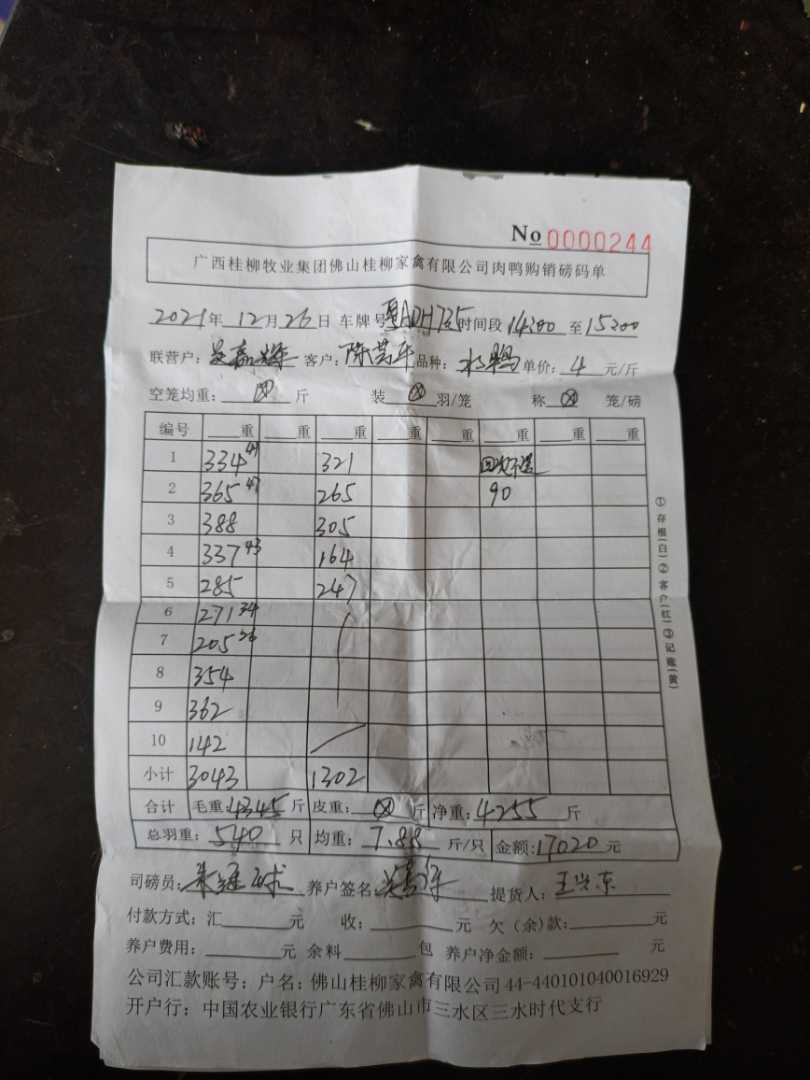 No 0000244
广西桂柳牧业集团佛山桂柳家禽有限公司肉鸭购销磅码单
2021年 12月26日 车牌号粤ADH735时间段14:00至15:00
联营户: 客户: 陈 平 品种: 水鸭 单价: 4 元/斤
空笼均重: 斤 装 羽/笼 称 笼/磅
编号 重 重 重 重 重 重 重 重
1 334 49 321
2 365 47 265 90
3 388 305
4 337 43 164
5 285 247
6 271 34
7 205 26
8 354
9 362
10 142
小计 3043 1302
合计 毛重:4345斤 皮重: 斤 净重:4255 斤
总羽重: 540 只 均重: 7.88 斤/只 金额:17020元
司磅员: 养户签名: 提货人:
付款方式: 汇 元 收: 元 欠(余)款: 元
养户费用: 元 余料 包 养户净金额: 元
公司汇款账号: 户名: 佛山桂柳家禽有限公司44-440101040016929
开户行: 中国农业银行广东省佛山市三水区三水时代支行
①存根(白)②客户(红)③记账(黄)